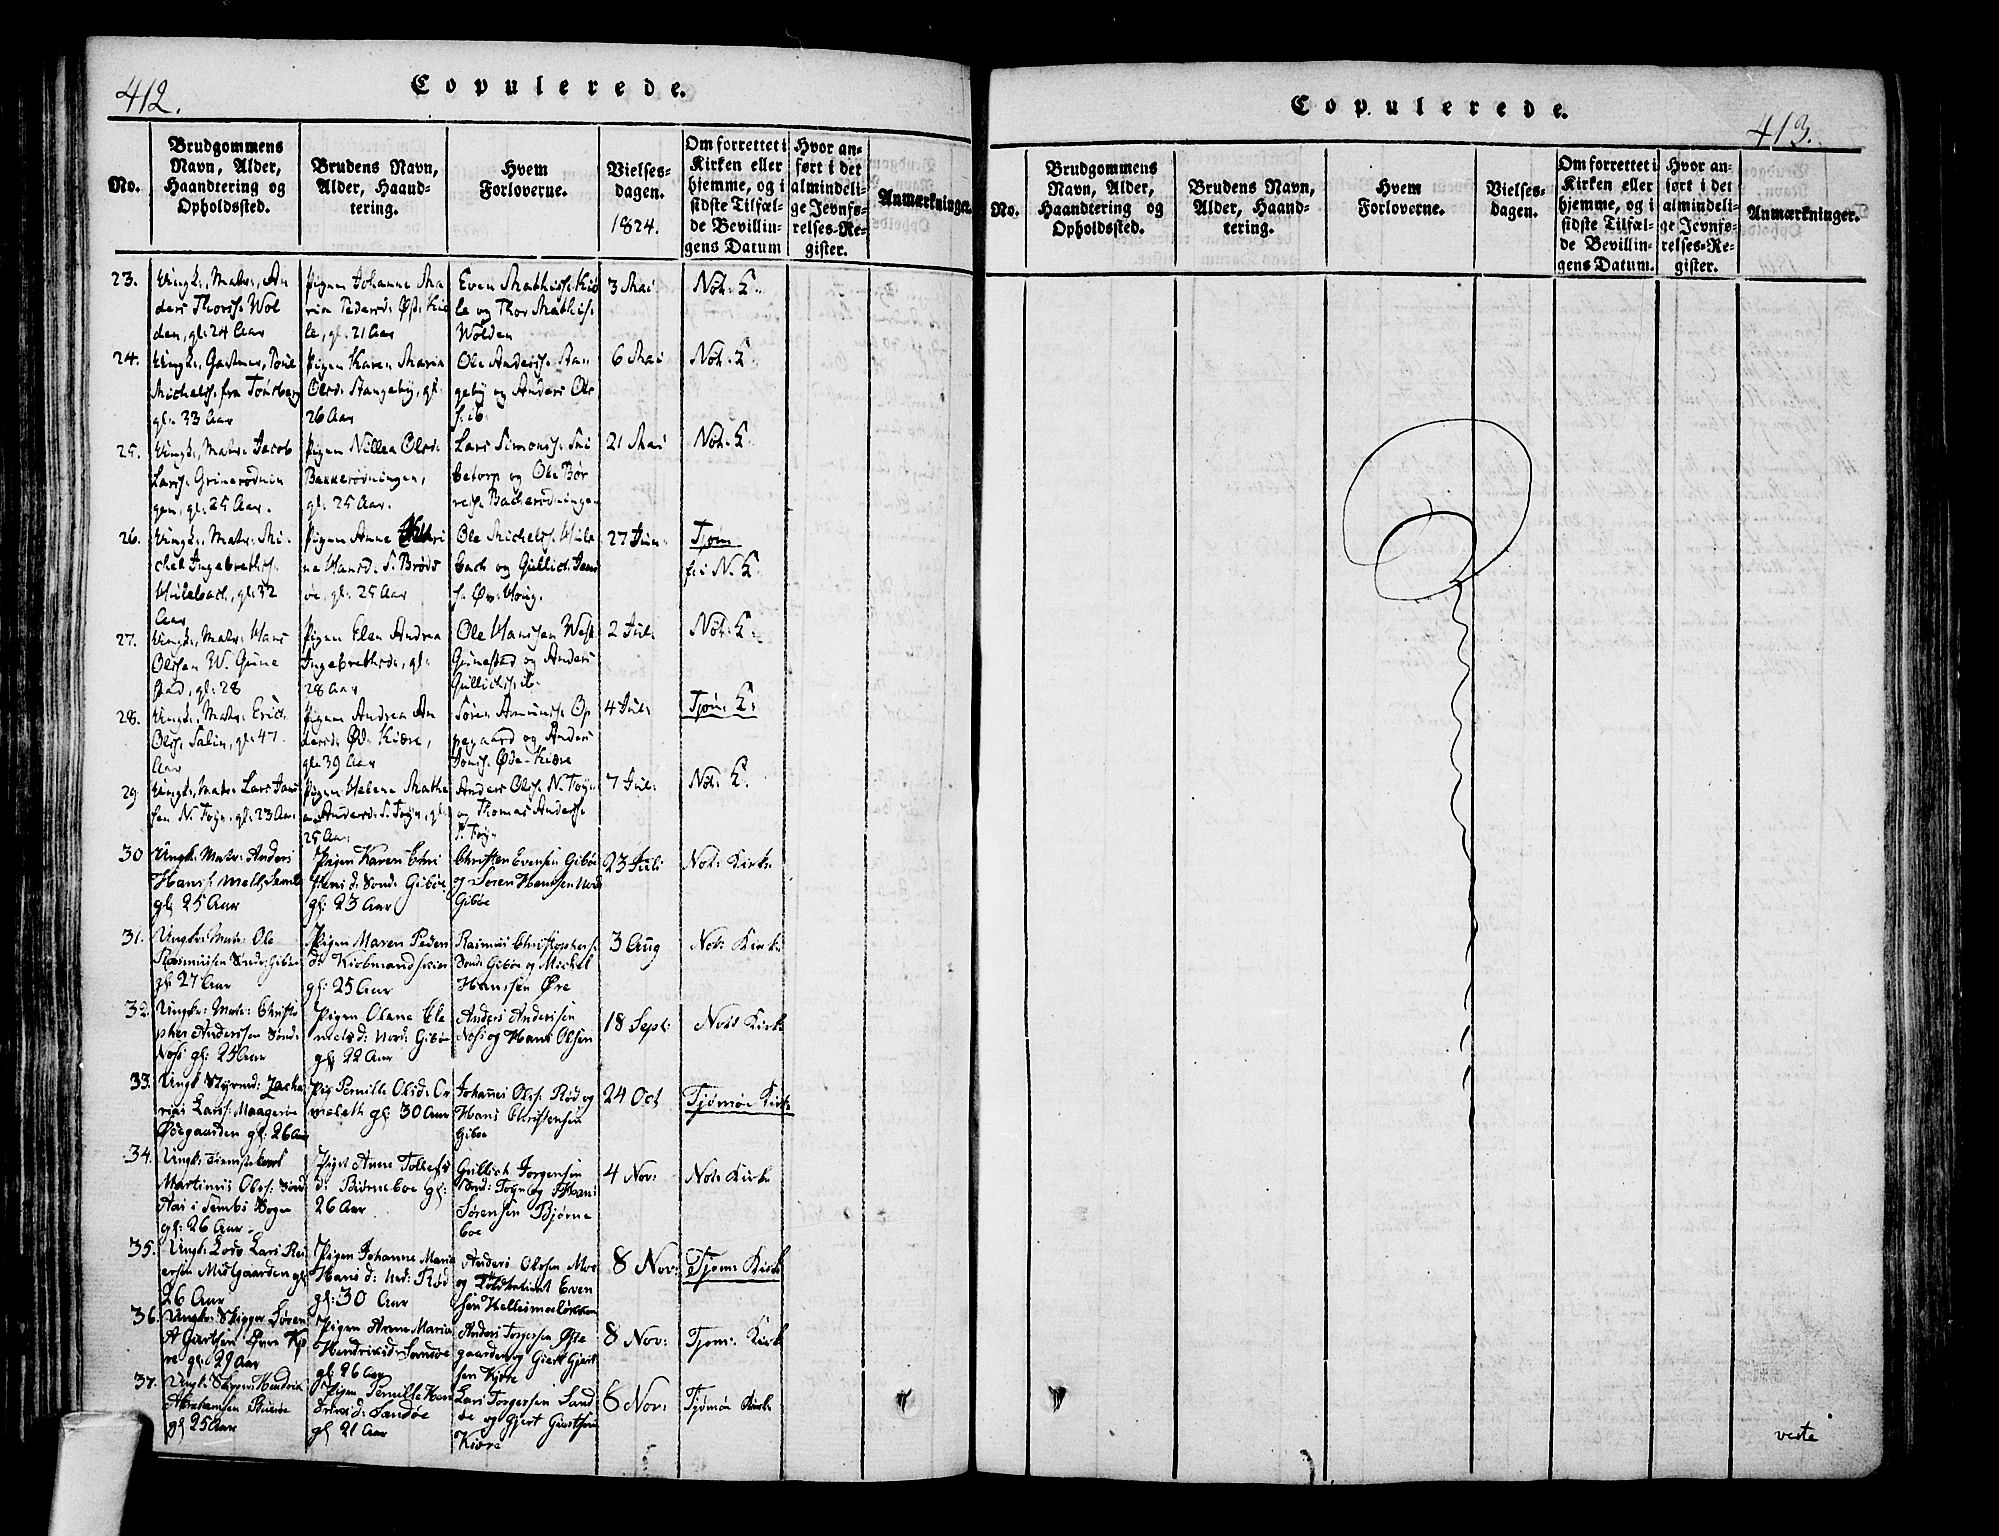 412.
Copulerede.
No.
Brudgommens
Navn, Alder,
Haandtering og
Opholdssted.
Brudens Navn,
Alder, Haand-
tering.
Hvem
Forloverne.
Vielses-
dagen.
1824.
Om forrettet i
Kirken eller
hjemme, og i
sidste Tilfæl-
de Bevillin-
gens Datum
Hvor an-
ført i det
almindeli-
ge Jevnfø-
relses-Re-
gister.
Anmærkninger.
23.
Ungk:, Matr:, An
ders Thorss: Wol
den, gl: 24 Aar
Pigen Johanne Ma
ria Pedersd:
le, gl: 21 Aar
Even Mathiss:
le og Thor Mathis:
Wolden
3 Mai
Nöt: K:
24.
Ungk:, Gastmer, Poul
Michels: fra Tönsberg
gl: 33 Aar
Pigen Karen Maria
Olsd: Stangeby, gl:
26 Aar
Ole Anderss: Stan
geby og Anders Ols
s: ib:
6 Mai
Nöt: K:
25.
Ungk:, Matr: Jacob
Larss: Grinerödnin
gen, gl: 25 Aar.
Pigen Nillea Olsd:
Bakkerödningen,
gl: 25 Aar.
Lars Simonss:
torp og Ole Bör
ress: Backerödningen
21 Mai
Nöt: K:
26.
Ungk:, Matr: Mi
chel Ingebrethss:
Hulebach, gl: 32
Aar
Pigen Anne
ne Hansd: S. Bröds
öe, gl: 25 Aar
Ole Michelss: Hule
bach og Gullich Jans
s: Öv: Houg.
27 Jun:
Tjøm
f: i N. K:
27.
Ungk:, Matr: Hans
Olssen W. Grine
stad, gl: 28
Pigen Elen Andrea
Ingebrethsd:, gl:
28 Aar
Ole Hanssen West
Grinestad og Anders
Gullichs: ib:
2 Jul:
Nöt: K:
28.
Ungk:, Matr: Erich
Olss: Salin, gl: 47
Aar
Pigen Andrea An
dersd: Öd: Kiære,
gl: 39 Aar
Sören Amunds: Op
pegaard og Anders
Jonss: Öde-Kiære
4 Jul:
Tjöm: K:
29
Ungk:, Matr: Lars Jans
sen N. Foyn, gl: 23 Aar
Pigen Helene Mathe
a Andersd: S. Foyn, gl:
25 Aar:
Anders Olss: N. Foyn
og Thomas Anderss:
S. Foyn
7 Jul:
Nöt: K:
30
Ungk: Matr: Anders
Hans: Mell: Semb
gl 25 Aar
Pigen Karen Chri
stens d: Sond: Giböe
gl: 23 Aar
Christen Evensen Giböe
og Soren Hanssen Nord
Giböe
23 Juli
Not: Kirke
31.
Ungk: Matr: Ole
Rasmusen Sönd: Giböe
gl: 27 Aar
Pigen Maren Peders
d: Kiobmandskiær
gl: 25 Aar
Rasmus Christophers:
Sond: Giböe og Michel
Hanssen Øre
3 Aug
Not: Kirke
32.
Ungk: Matr: Christo
pher Anderssen Sønd:
Nøss gl: 25 Aar
Pigen Olane Cle
metsd: Nord: Giböe
gl: 22 Aar
Anders Anderssen
Nøss og Hans Olsen
18 Sept:
Nots Kirke
33.
Ungk: Styrmd: Zacha
rias Larss: Maagerøe
Ødegaarden gl: 26 Aar
Pig Pernille Olsd: Or
meleth gl: 30 Aar
Johannes Olss: Rød og
Hans Christensen
Giböe
24 Oct
Tjømøe Kirke
34.
Ungk: Tieniste karl
Martinus Olss: Sönd
Aas i Sembs Sogn
gl: 26 Aar
Piget Anne Tollefs
d: Biörneboe gl:
26 Aar
Gullich Jorgensen
Sönd: Foyn og Hans
Sørensen Bjørne
boe
4 Nov:
Not: Kirke
35.
Ungk: Lods Lars Rei
ersen Midgaarden gl
26 Aar
Pigen Johanne Maria
Hans d: Ned: Rød
gl: 30 Aar
Anders Olssen Moe
og Even
sen Hellesmoeløkken
8 Nov:
Tjøm: Kirke
36.
Ungk: Skipper Søren
A Giertsen Øvre Kjø
re gl: 29 Aar
Pigen Anne Maria
Hendrixsd: Sandøe
gl 26 Aar
Anders Torgersen Øste
gaarden og Giert Gjert
sen Kjøre
8 Nov:
Tjøm: Kirk
37.
Ungk: Skipper Hendrik
Abrahamsen Bueröe
gl 25 Aar
Pigen Pernille Hen
driks d: Sandøe
gl 21 Aar
Lars Torgersen Sand
öe og Gjert Giertsen
Kiøre
6 Nov:
Tjømøe Kirk
Copulerede.
413.
No.
Brudgommens
Navn, Alder,
Haandtering og
Opholdssted.
Brudens Navn,
Alder, Haand-
tering.
Hvem
Forloverne.
Vielses-
dagen.
Om forrettet i
Kirken eller
hjemme, og i
sidste Tilfæl-
de Bevillin-
gens Datum.
Hvor an-
ført i det
almindeli-
ge Jevnfø-
relses-Re-
gister.
Anmærkninger.
veste